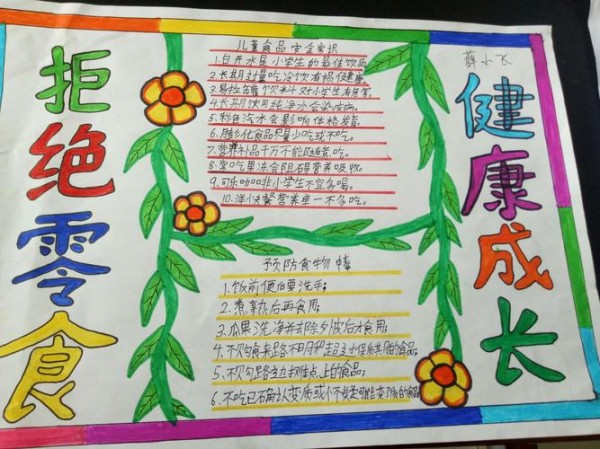 拒绝零食
儿童食品安全常识
1.白开水是小学生的最佳饮品
2.长期过量吃冷饮有损健康
3.易拉罐饮料对小学生有危害
4.长期饮用纯净水会
5.彩色汽水会影响体格发育
6.膨化食品尽量少吃或不吃。
7.营养补品千万不能随意吃。
8.变吃果冻会阻碍营养吸收
9.可乐咖啡小学生不宜多喝。
10.洋快餐营养单一不多吃。
预防食物中毒
1.饭前便后洗手;
2.煮熟后再食用;
3.瓜果洗净并去除外皮后才食用;
4.不购食来路不明和超过保质期的食品;
5.不购路边摊点上的食品;
6.不吃已确认变质或怀疑可能变质的食品
薛小飞
健康成长